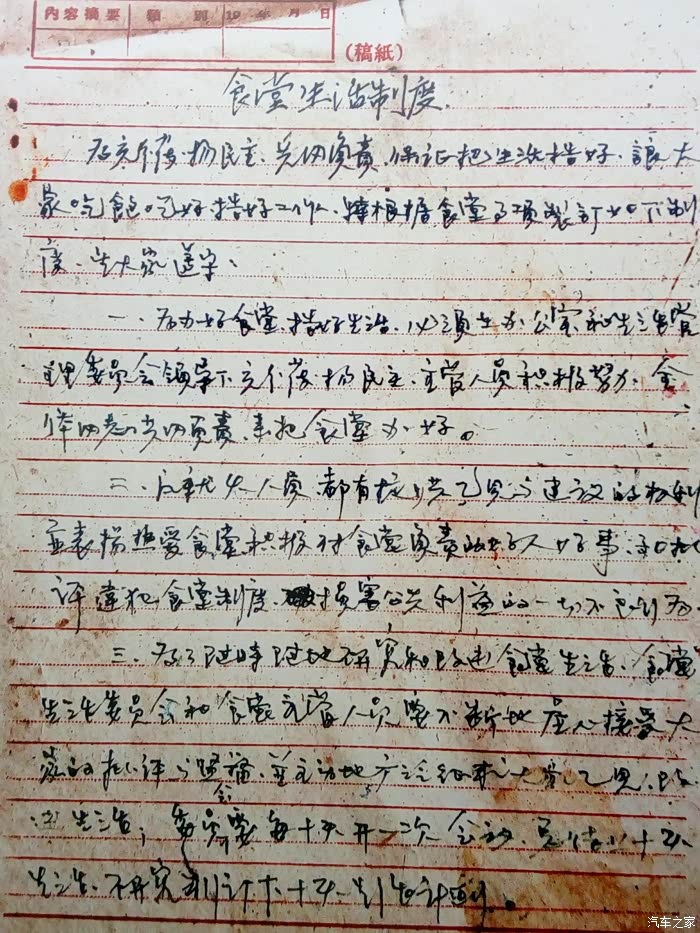 内容摘要 類別 19 年 月 日
(稿紙)
食堂生活制度
为充分發揚民主、共同负責、保证把生活搞好、讓大
家吃飽吃好搞好工作、特根據食堂 製訂如下制
度、 大家遵守、
一、为办好食堂、搞好生活、必須在办公室和生活管
理委員会領导下充分發揚民主、主管人员积极努力、全
体同志共同负責、来把食堂办好。
二、 人员、都有提 意見与建議的权利
並表揚热爱食堂积极对食堂负責的好人好事、和批
评違犯食堂制度、損害公共利益的一切不良行为
三、为了随時随地研究和改进食堂生活、食堂
生活委员会和食堂主管人员要不断地虚心接受大
家的批评与監督、並主动地广泛征求大家意見、改
进生活;委员会要每十天开一次会议、总结以前十天
生活、研究制订下十天生活计划。
汽车之家